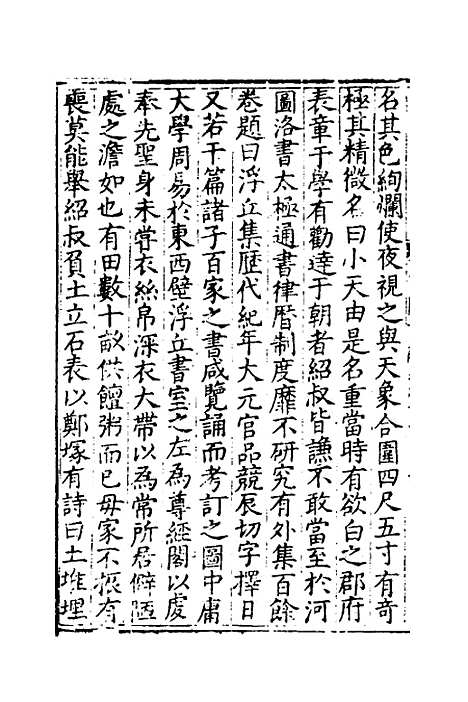 名其色絢爛使夜視之與天象合圍四尺五寸有奇
極其精微名曰小天由是名重當時有欲白之郡府
表章于學有勸達于朝者紹叔皆謙不敢當至於河
圖洛書太極通書律曆制度靡不研究有外集百餘
卷題曰浮丘集歷代紀年大元官品競辰切字擇日
又若干篇諸子百家之書咸覽誦而考訂之圖中庸
大學周易於東西壁浮丘書室之左為尊經閣以處
奉先聖身未甞衣絲帛深衣大帶以為常所居僻陋
處之澹如也有田數十畝供饘粥而已毋家不振有
喪莫能舉紹叔負土立石表以鄭塚有詩曰土堆埋